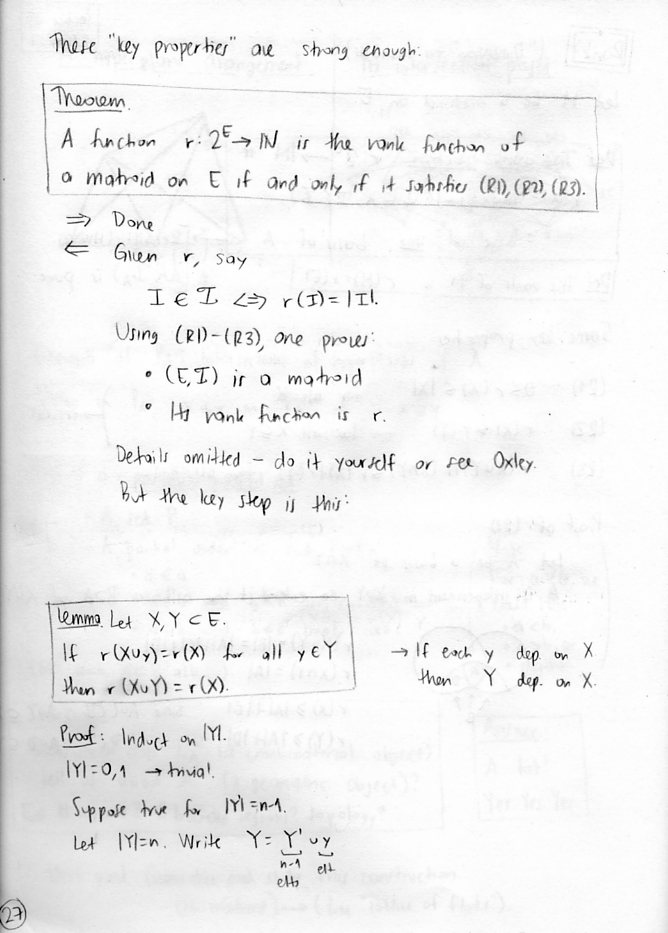 These "key properties" are strong enough:
Theorem.
A function r: 2^E → ℕ is the rank function of
a matroid on E if and only if it satisfies (R1), (R2), (R3).
⇒ Done
⇐ Given r, say
I ∈ 𝓘 <=> r(I) = |I|.
Using (R1)-(R3), one proves:
• (E, 𝓘) is a matroid
• Its rank function is r.
Details omitted - do it yourself or see Oxley.
But the key step is this:
Lemma. Let X, Y ⊂ E.
If r(X∪y) = r(X) for all y ∈ Y → If each y dep. on X
then r(X∪Y) = r(X). then Y dep. on X.
Proof: Induct on |Y|.
|Y|=0,1 → trivial.
Suppose true for |Y|=n-1.
Let |Y|=n. Write Y = Y' ∪ y
n-1 elt
elts
27